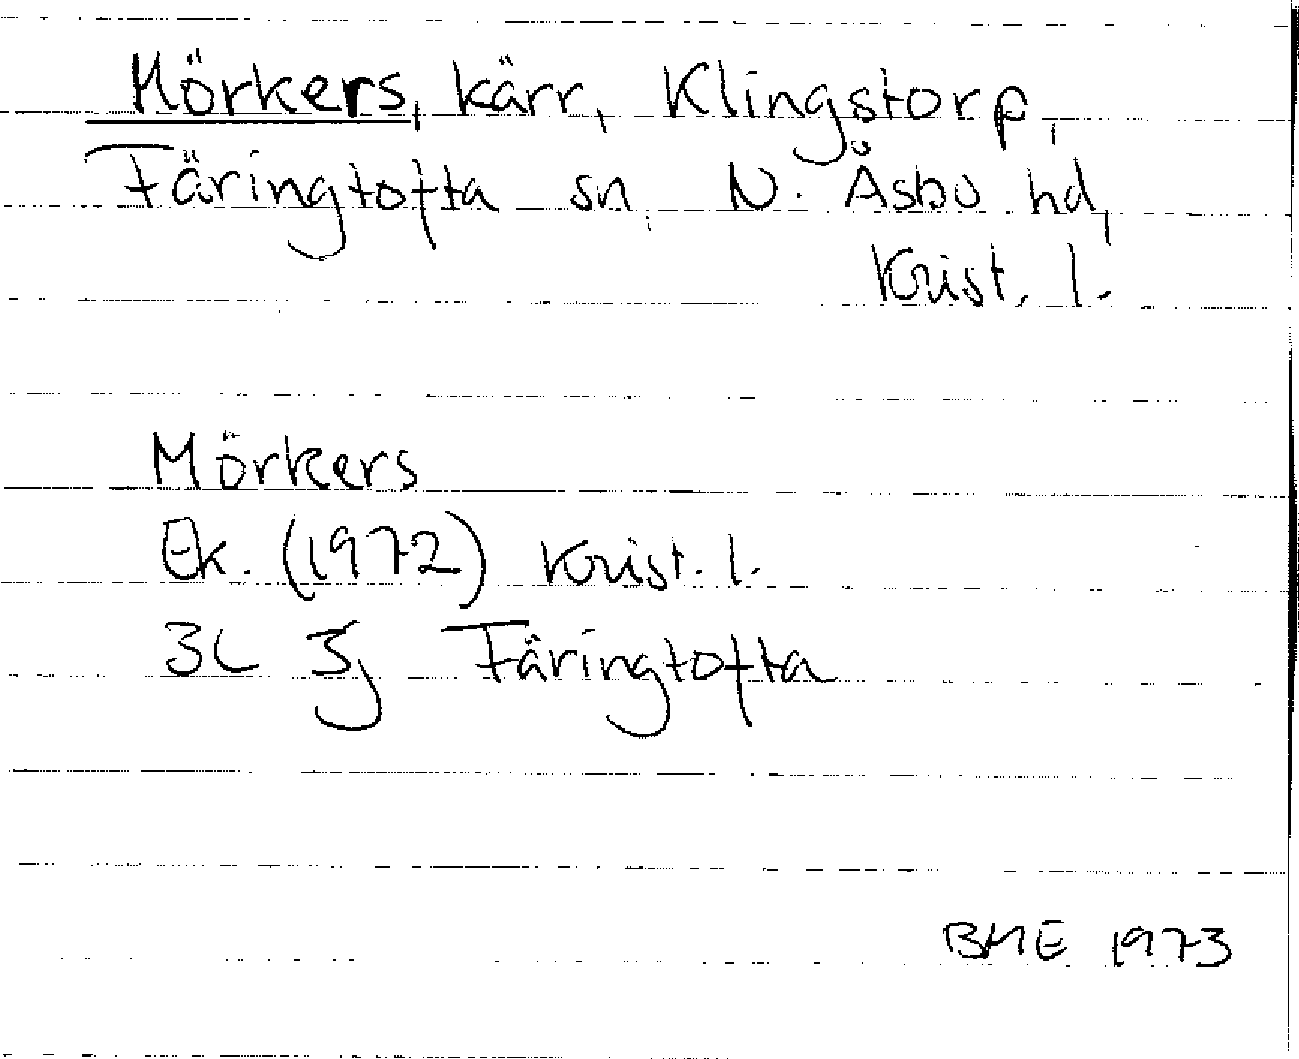 Mörkers, kärr, Klingstorp,
Färingtofta sn, N. Åsbo hd,
Krist. l.
Mörkers
Ek. (1972) Krist. l.
3C 3j Färingtofta
BME 1973